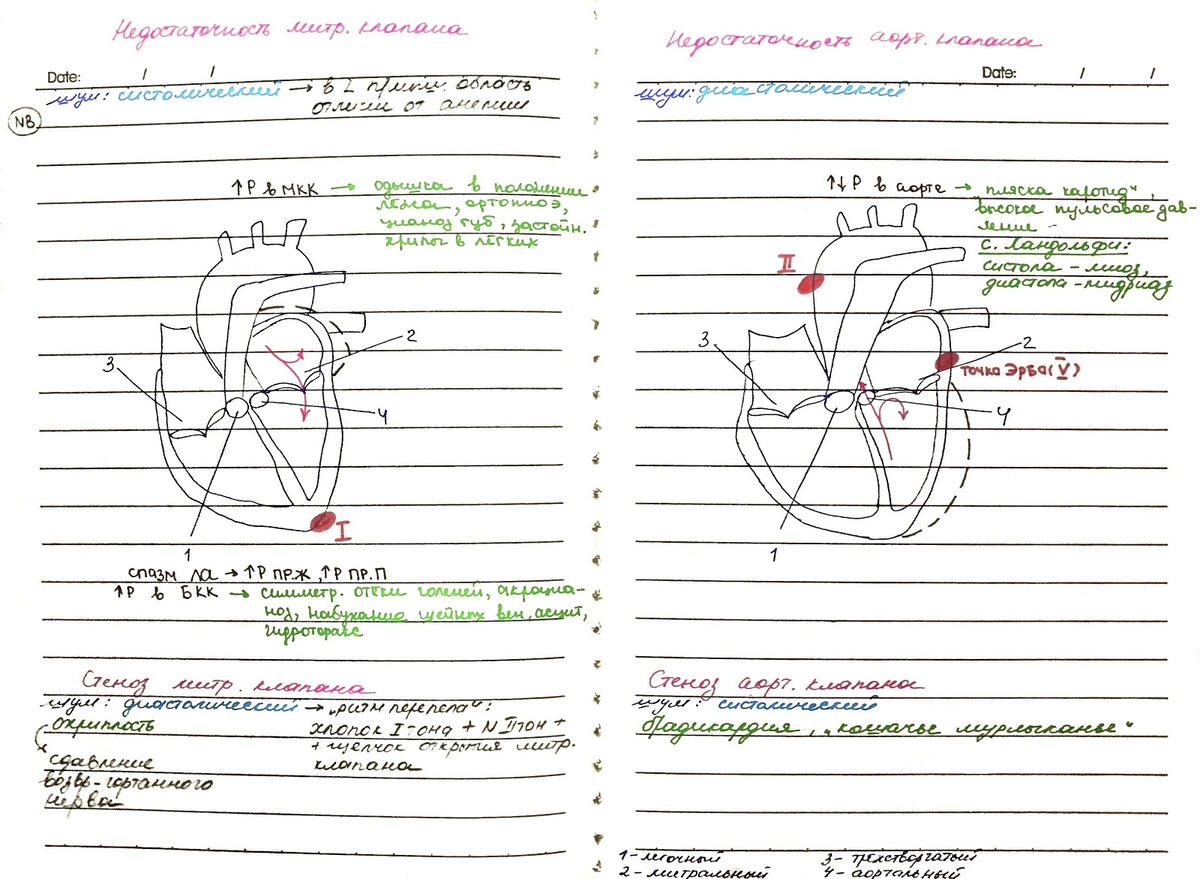 Недостаточность митр. клапана
Date: / /
шум: систолический → в L п/мыш. область
отличи от анемии
NB
↑P в МКК → одышка в положении
лёжа, ортопноэ,
цианоз губ, застойн.
хрипы в лёгких
3
2
4
1
I
спазм ЛА → ↑P пр.Ж, ↑P пр.П
↑P в БКК → симметр. отёки голеней, акроциа-
ноз, набухание шейных вен, асцит,
гидроторакс
Стеноз митр. клапана
шум: диастолический → „ритм перепела":
охриплость
хлопок I тона + N II тон +
+ щелчок открытия митр.
клапана
сдавление
возвр-гортанного
нерва
Недостаточность аорт. клапана
Date: / /
шум: диастолический
↑↓ P в аорте → „пляска каротид",
высокое пульсовое дав-
ление
с. Ландольфи:
систола - миоз,
диастола - мидриаз
II
3
2
точка Эрба (V)
4
1
Стеноз аорт. клапана
шум: систолический
брадикардия, „кошачье мурлыканье"
1 - лёгочный
2 - митральный
3 - трёхстворчатый
4 - аортальный